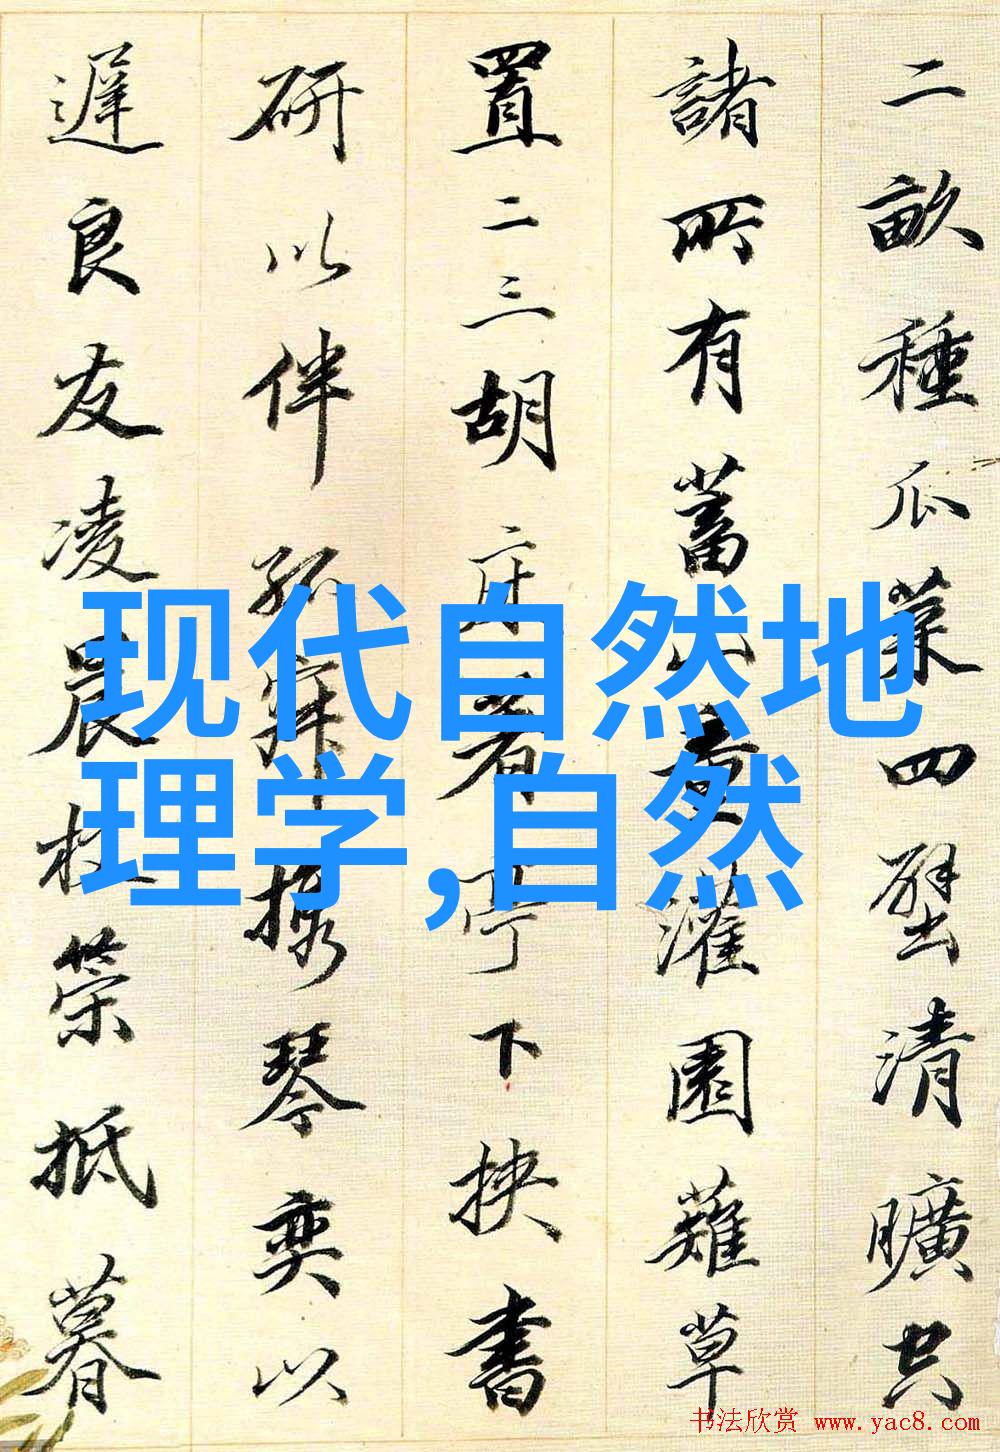 二畝種瓜菜四壁清曠空
諸所有蓄山童灌園薙草
置二三胡床著亭下挾書
研以伴孤寂攜琴奕以
遲良友凌晨杖策抵暮
现代自然地
理学,自然
书法欣赏 www.yac8.com